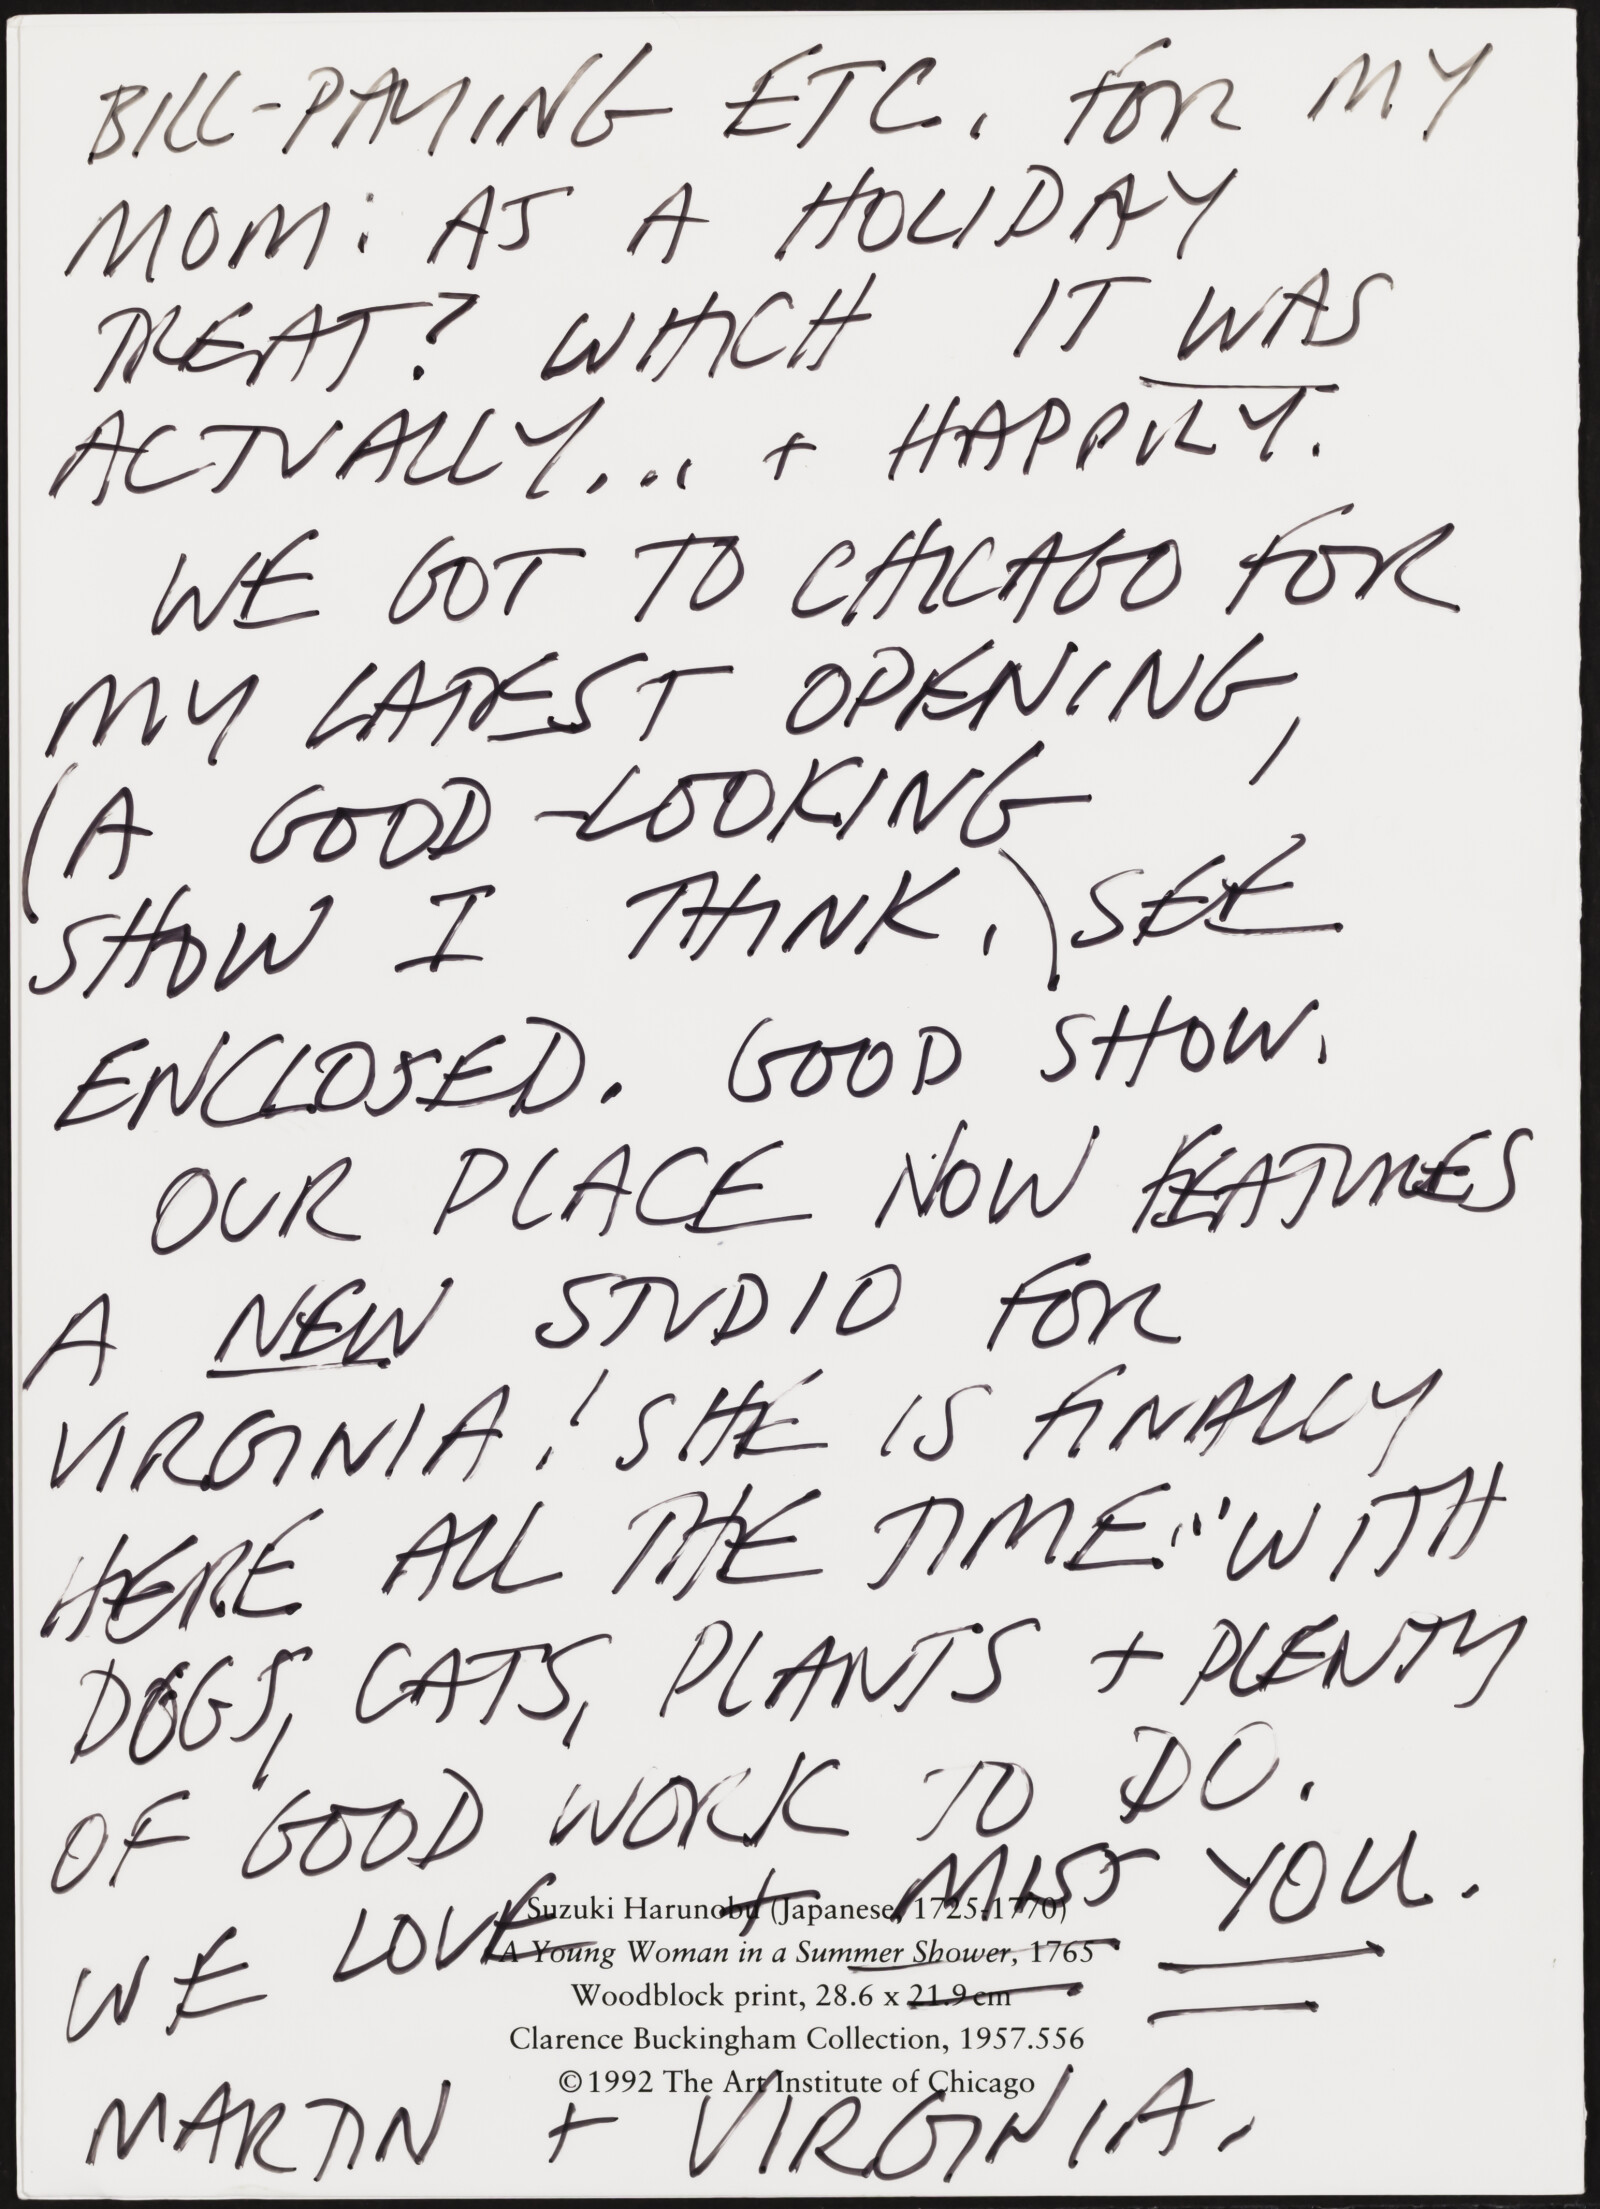 BILL-PAYING ETC. FOR MY
MOM: AS A HOLIDAY
TREAT? WHICH IT WAS
ACTUALLY... + HAPPILY.
WE GOT TO CHICAGO FOR
MY LATEST OPENING,
(A GOOD-LOOKING
SHOW I THINK.) SEE
ENCLOSED. GOOD SHOW.
OUR PLACE NOW FEATURES
A NEW STUDIO FOR
VIRGINIA! SHE IS FINALLY
HERE ALL THE TIME... WITH
DOGS, CATS, PLANTS + PLENTY
OF GOOD WORK TO DO.
WE LOVE + MISS YOU.
Suzuki Harunobu (Japanese, 1725-1770)
A Young Woman in a Summer Shower, 1765
Woodblock print, 28.6 x 21.9 cm
Clarence Buckingham Collection, 1957.556
©1992 The Art Institute of Chicago
MARTIN + VIRGINIA.